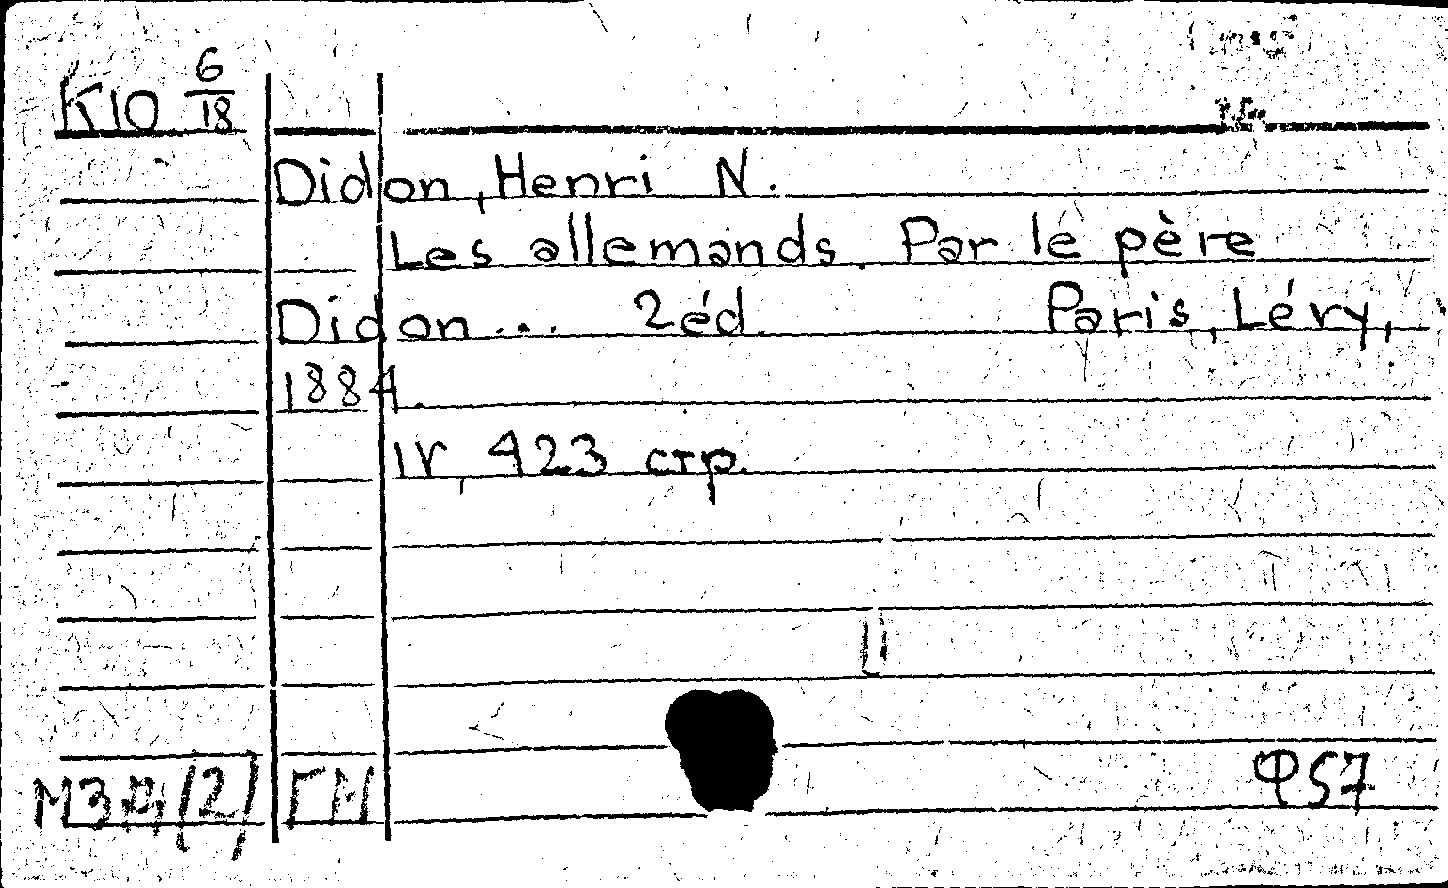 К10 6/18
Didon, Henri N.
Les allemands. Par le père
Didon... 2éd. Paris, Léry,
1884.
IV 423 стр.
МЗД(2) ГМ Ф57